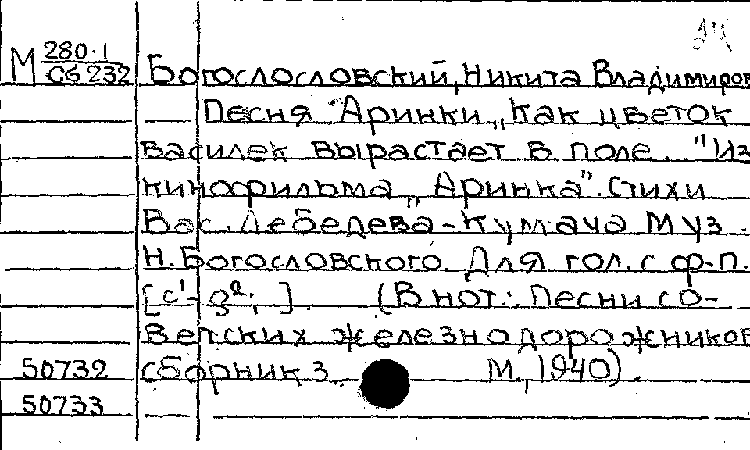 М 280.1
Сб 232 Богослословский, Никита Владимиров
Песня Аринки „Как цветок
василек вырастает в поле." Из
кинофильма „Аринка". Стихи
Вас. Лебедева-Кумача Муз.
Н. Богословского. Для гол. с ф-п.
[c¹-g²; ]. (В нот.: Песни со-
ветских железнодорожников
50732 сборник 3. М., 1940).
50733